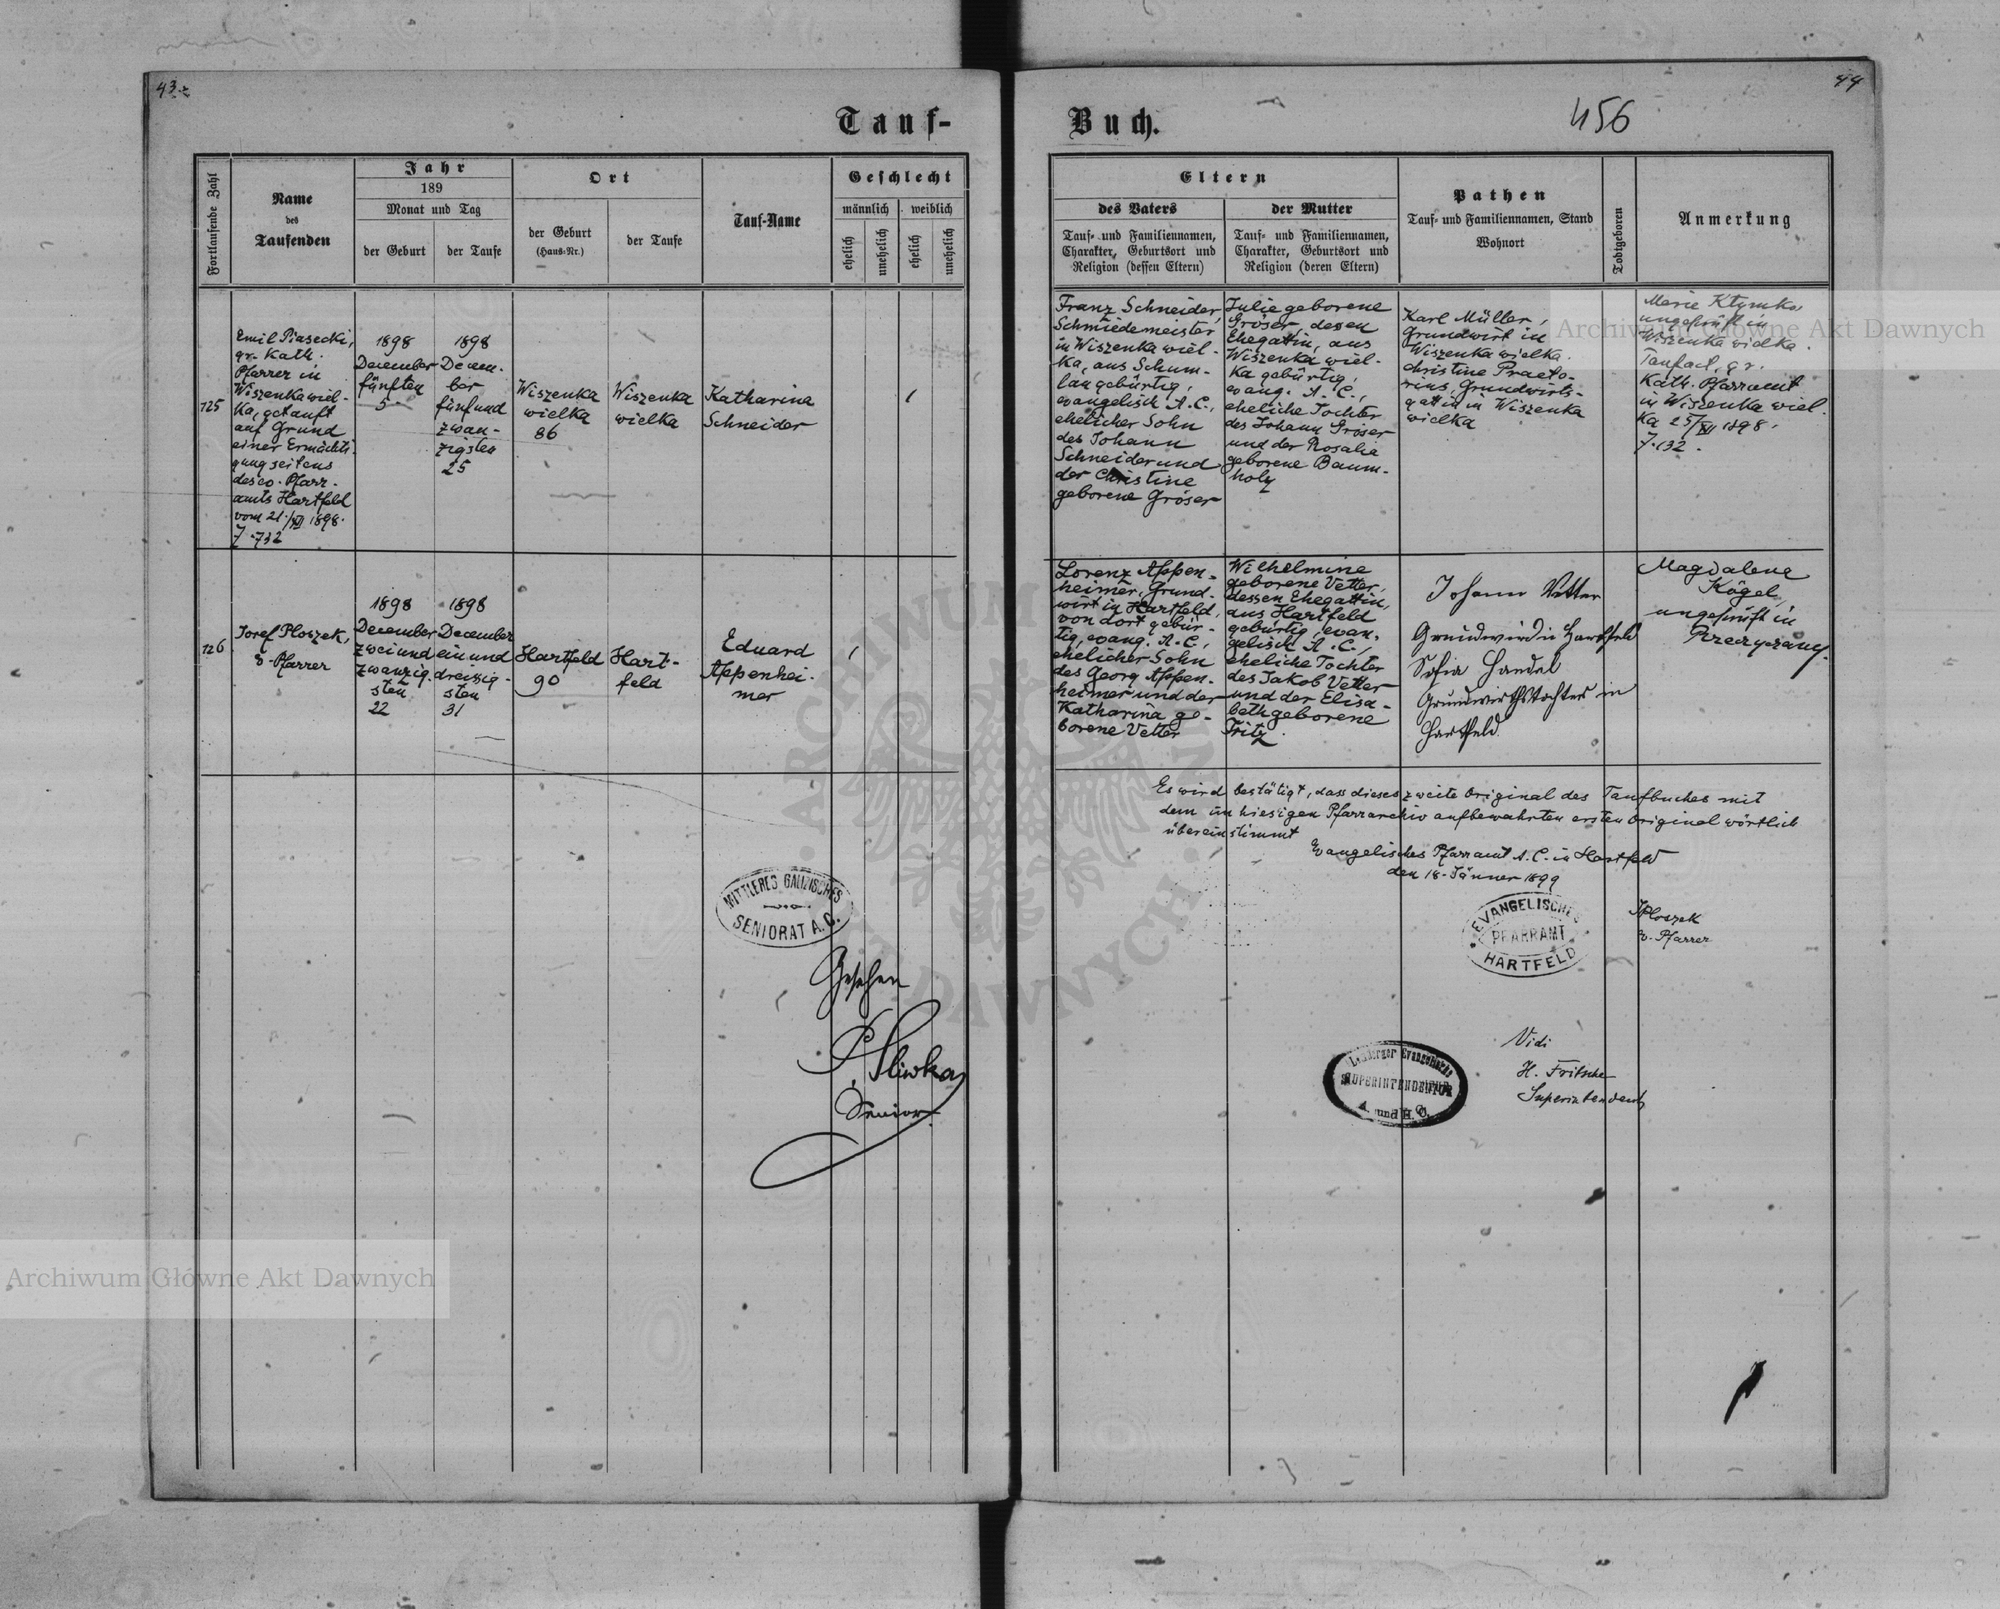 43.
44
Tauf-
Buch.
456
Fortlaufende Zahl
Name
des
Taufenden
Jahr
189
Monat und Tag
der Geburt
der Taufe
Ort
der Geburt
(Haus-Nr.)
der Taufe
Tauf-Name
Geschlecht
männlich
weiblich
ehelich
unehelich
ehelich
unehelich
Eltern
des Vaters
Tauf- und Familiennamen,
Charakter, Geburtsort und
Religion (dessen Eltern)
der Mutter
Tauf- und Familiennamen,
Charakter, Geburtsort und
Religion (deren Eltern)
Pathen
Tauf- und Familiennamen, Stand
Wohnort
Todtgeboren
Anmerkung
125
Emil Piasecki,
gr. Kath.
Pfarrer in
Wiszenka wiel-
ka, getauft
auf Grund
einer Ermächti-
gung seitens
des ev. Pfarr-
amts Hartfeld
vom 21./XII 1898.
Z. 732
1898
December
fünften
5
1898
Decem-
ber
fünfund
zwan-
zigsten
25
Wiszenka
wielka
86
Wiszenka
wielka
Katharina
Schneider
/
Franz Schneider,
Schmiedemeister
in Wiszenka wiel-
ka, aus Schum-
lau gebürtig,
evangelisch A.C.,
ehelicher Sohn
des Johann
Schneider und
der Christine
geborene Gröser
Julie geborene
Gröser, dessen
Ehegattin, aus
Wiszenka wiel-
ka gebürtig,
evang. A.C.,
eheliche Tochter
des Johann Gröser
und der Rosalie
geborene Baum-
holz
Karl Müller,
Grundwirt in
Wiszenka wielka.
Christine Praeto-
rius, Grundwirts-
gattin in Wiszenka
wielka
Marie Klymko,
ungeprüft in
Wiszenka wielka.
Taufact, gr.
Kath. Pfarramt
in Wiszenka wiel-
ka 25/XII 1898.
Z. 132.
126
Josef Ploszek,
v. Pfarrer
1898
December
zwei und
zwanzig-
sten
22
1898
December
ein und
dreissig-
sten
31
Hartfeld
90
Hart-
feld
Eduard
Appenhei-
mer
/
Lorenz Appen-
heimer, Grund-
wirt in Hartfeld,
von dort gebür-
tig, evang. A.C.,
ehelicher Sohn
des Georg Appen-
heimer und der
Katharina ge-
borene Vetter
Wilhelmine
geborene Vetter,
dessen Ehegattin,
aus Hartfeld
gebürtig, evan-
gelisch A.C.,
eheliche Tochter
des Jakob Vetter
und der Elisa-
beth geborene
Fritz.
Johann Vetter
Grundwirt in Hartfeld
Sofia Handel
Grundwirthstochter in
Hartfeld
Magdalene
Kögel,
ungeprüft in
Przeryczany.
Es wird bestätigt, dass dieses zweite Original des Taufbuches mit
dem im hiesigen Pfarrarchiv aufbewahrten ersten Original wörtlich
übereinstimmt
Evangelisches Pfarramt A.C. in Hartfeld
den 18. Jänner 1899
MITTLERES GALIZISCHES
SENIORAT A.C.
EVANGELISCHES
PFARRAMT
HARTFELD
JPloszek
v. Pfarrer
Gesehen
Sliwka
Senior
Lemberger Evangelische
SUPERINTENDENTUR
A. und H. C.
Vidi
H. Fritsche
Superintendent
Archiwum Główne Akt Dawnych
Archiwum Główne Akt Dawnych
ARCHIWUM GŁÓWNE AKT DAWNYCH